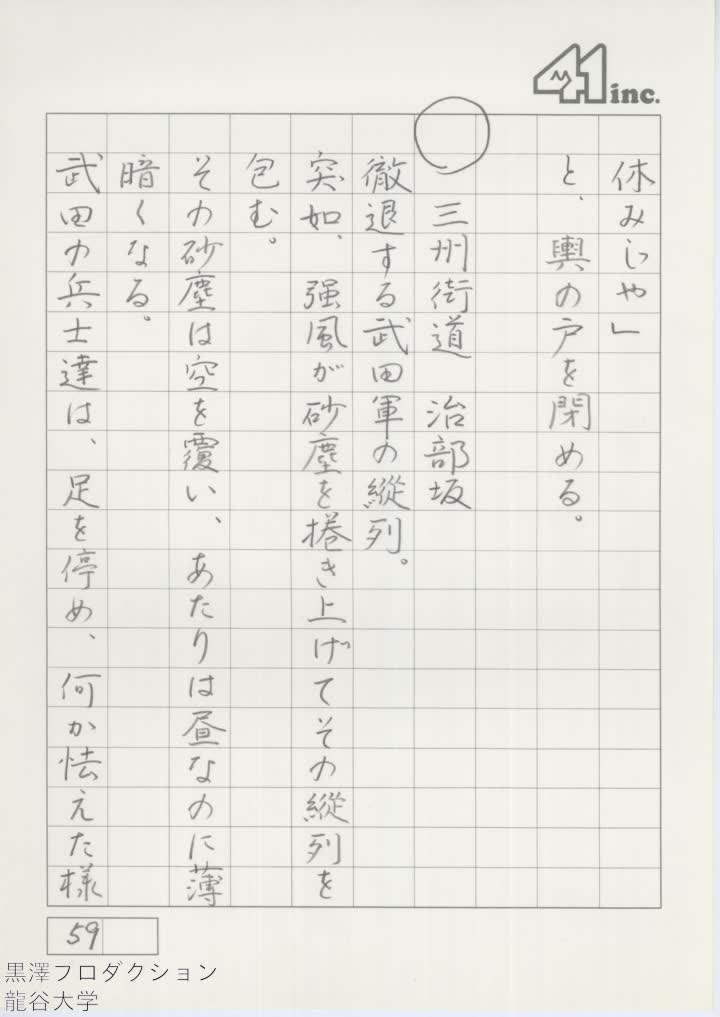 M41 inc.
休みじや」
と、輿の戸を閉める。
○ 三州街道 治部坂
徹退する武田軍の縦列。
突如、強風が砂塵を捲き上げてその縦列を
包む。
その砂塵は空を覆い、あたりは昼なのに薄
暗くなる。
武田の兵士達は、足を停め、何か怯えた様
59
黒澤プロダクション
龍谷大学